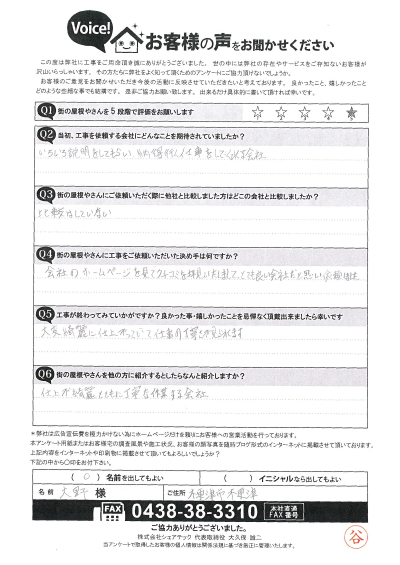 Voice!
お客様の声をお聞かせください
この度は弊社に工事をご用命頂き誠にありがとうございました。世の中には弊社の存在やサービスをご存知ないお客様が
沢山いらっしゃいます。その方たちに弊社をよく知って頂くためのアンケートにご協力頂けないでしょうか。
お客様のご意見をお聞かせいただき今後の活動に反映させていただきたいと考えております。良かったこと、嬉しかったこと
どのような些細な事でも結構です。是非ご協力お願い致します。出来るだけ具体的に書いて頂ければ幸いです。
Q1 街の屋根やさんを5段階で評価をお願いします
☆ ☆ ☆ ☆ ★
Q2 当初、工事を依頼する会社にどんなことを期待されていましたか?
いろいろ説明をしてもらい、納得行く仕事をしてくれる会社
Q3 街の屋根やさんにご依頼いただく際に他社と比較しました方はどこの会社と比較しましたか?
比較はしていない
Q4 街の屋根やさんに工事をご依頼いただいた決め手は何ですか?
会社のホームページを見てクチコミを拝見いたしまして、とても良い会社だと思い
Q5 工事が終わってみていかがですか?良かった事・嬉しかったことを忌憚なく頂戴出来ましたら幸いです
大変綺麗に仕上がっていて仕事の丁寧さが見られます
Q6 街の屋根やさんを他の方に紹介するとしたらなんと紹介しますか?
仕上が綺麗とともに丁寧な作業する会社
*弊社は広告宣伝費を極力かけない為にホームページだけを頼りにお客様への営業活動を行っております。
本アンケート用紙またはお客様宅の調査風景や施工状況、お客様の顔写真を随時ブログ形式のインターネットに掲載させて頂いております。
上記内容をインターネットや印刷物に掲載させて頂いてもよろしいでしょうか?
下記の中から〇印をお付下さい。
(○)名前を出してもよい ( )イニシャルなら出してもよい
名前 大野 様 ご住所 木更津市木更津
FAX 0438-38-3310 本社直通 FAX番号
ご協力ありがとうございました。
株式会社シェアテック 代表取締役 大久保 誠二
当アンケートで取得したお客様の個人情報は関係法規に基づき厳正に管理いたします。
谷